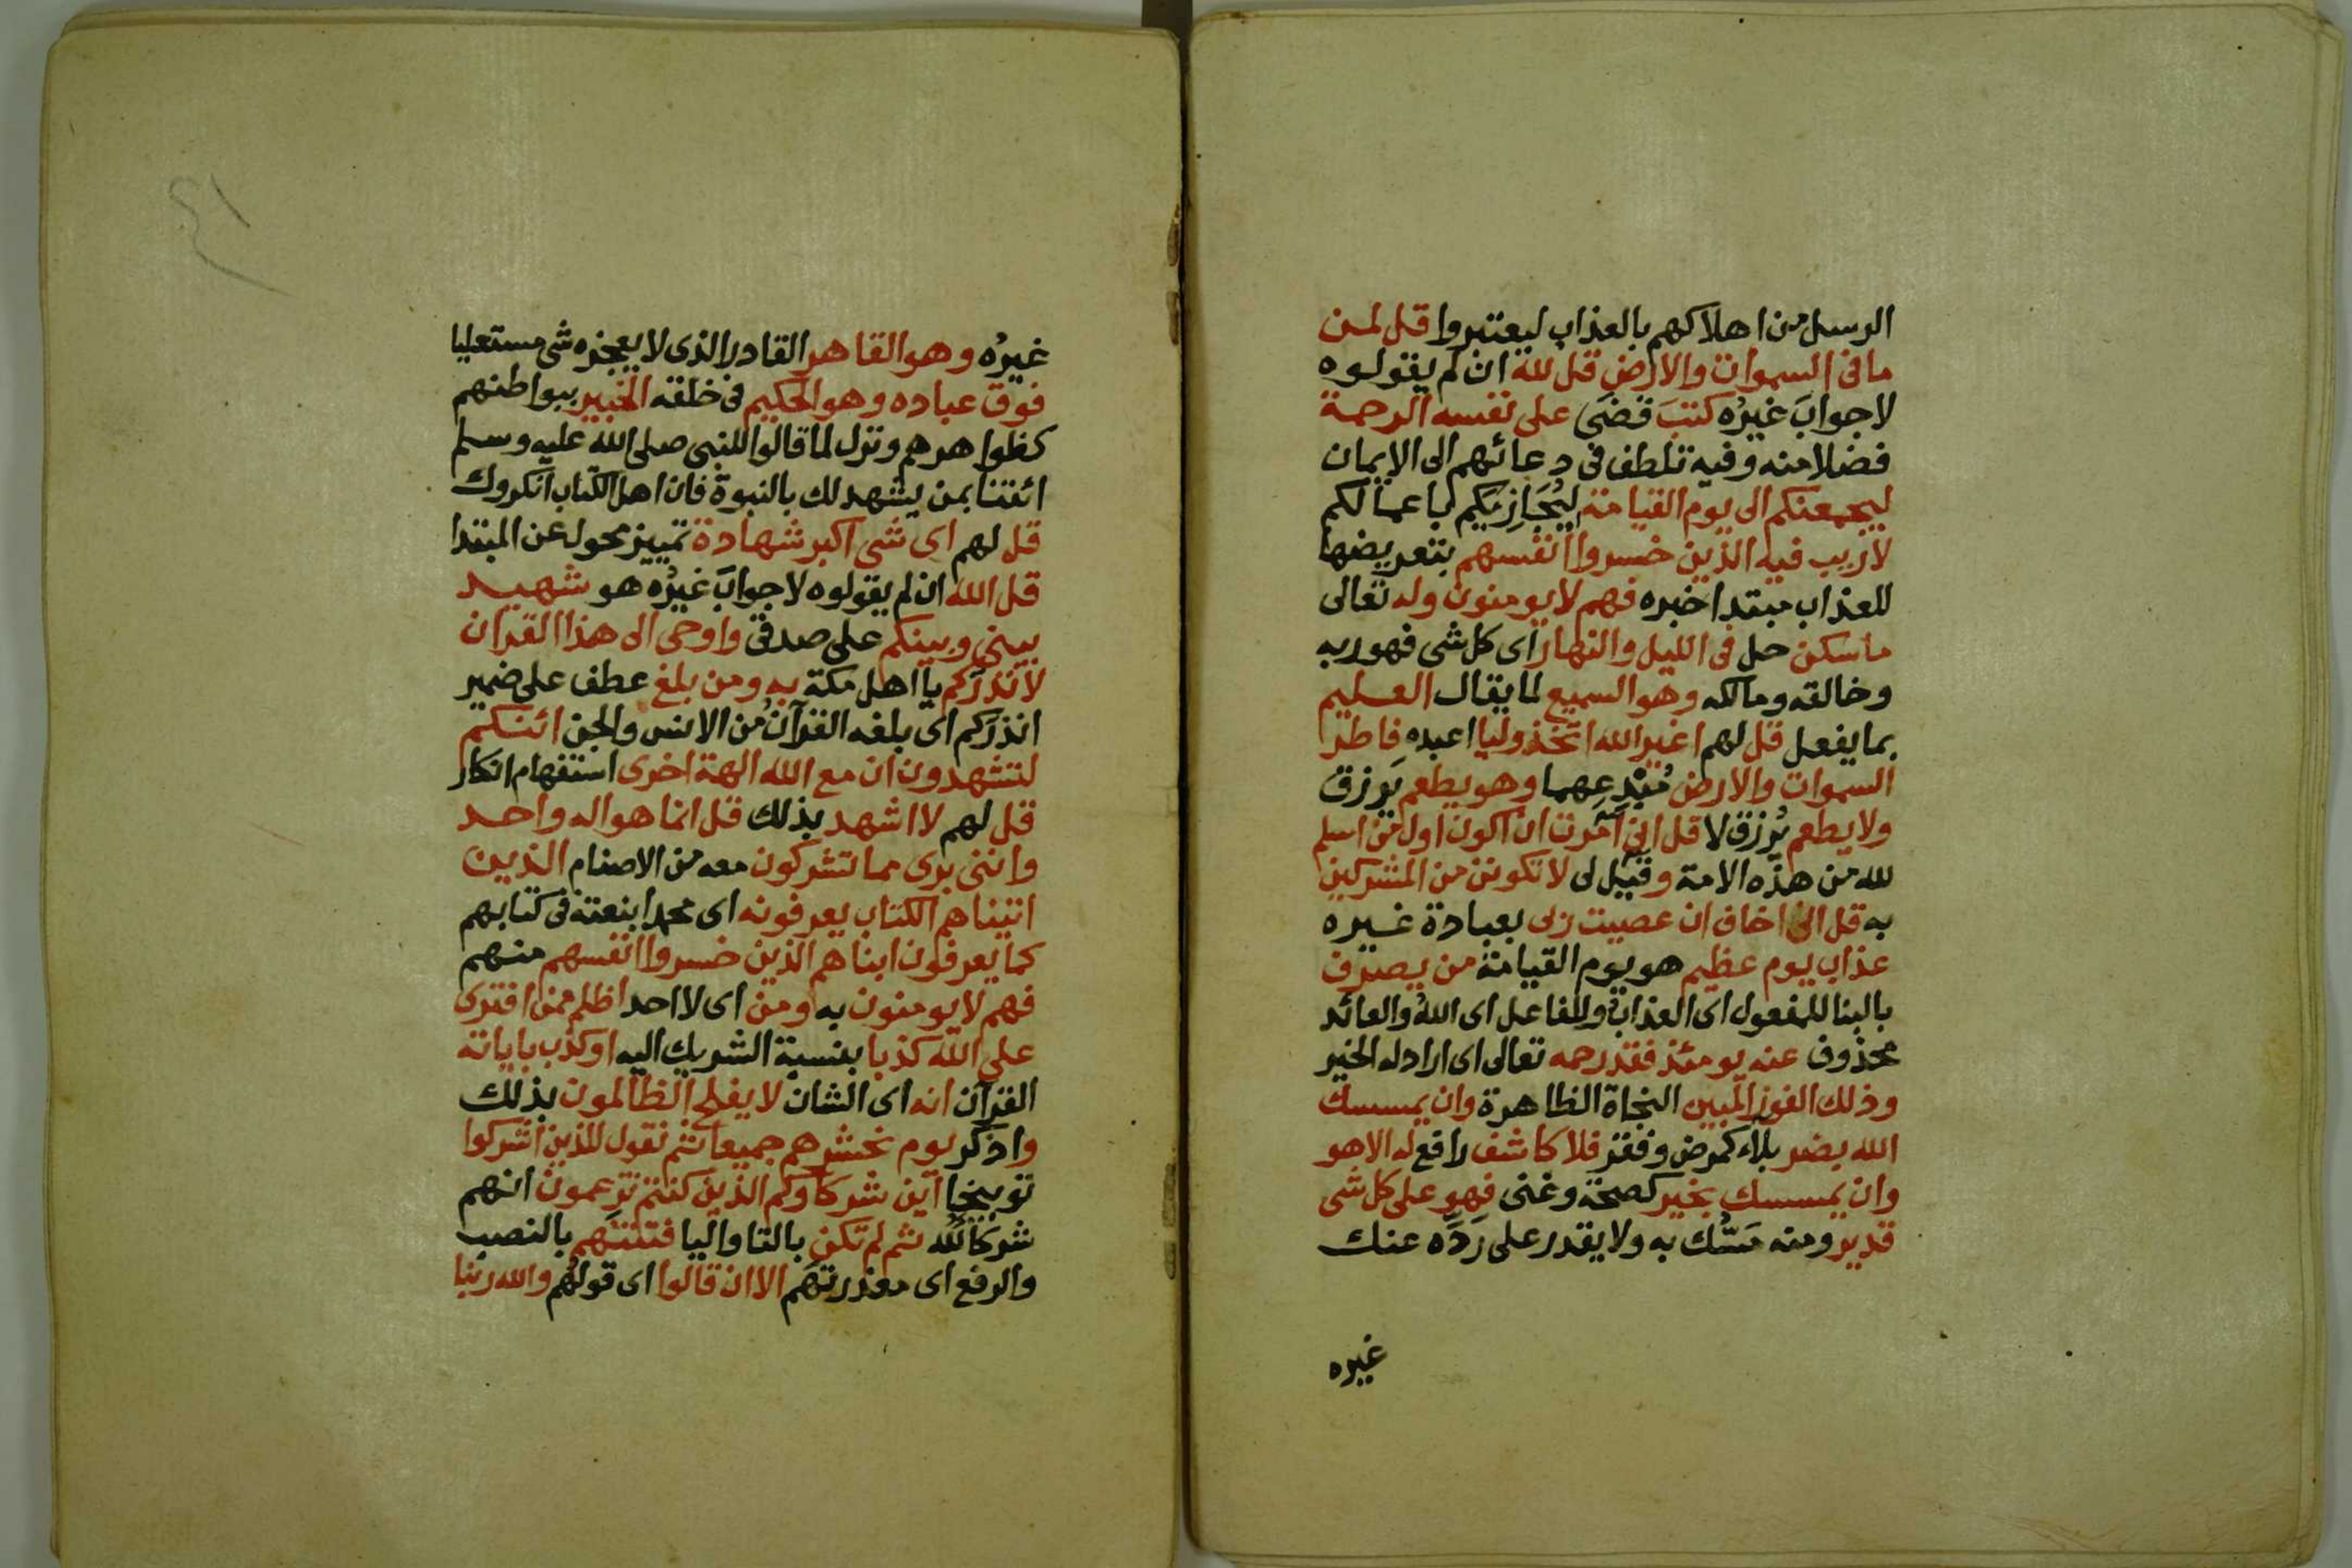 الرسل من اهلاكهم بالعذاب ليعتبروا قل لمن
ما فى السموات والارض قل لله ان لم يقولوه
لا جوابَ غيرُه كتبَ قضَى على نفسه الرحمة
فضلا منه وفيه تلطف فى دعائهم الى الايمان
ليجمعنكم الى يوم القيامة ليُجَازِيَكم باعمالكم
لا ريب فيه الذين خسروا انفسهم بتعريضها
للعذاب مبتدا خبره فهم لا يومنون وله تعالى
ما سكن حل فى الليل والنهار اى كل شى فهو ربه
وخالقه ومالكه وهو السميع لما يقال العليم
بما يفعل قل لهم اغير الله اتخذ وليا اعبده فاطر
السموات والارض مُبْدِعِهما وهو يطعم يَرزق
ولا يطعم يُرزق لا قل انى امرت ان اكون اول من اسلم
لله من هذه الامة وقيل لى لا تكونن من المشركين
به قل انى اخاف ان عصيت ربى بعبادة غيره
عذاب يوم عظيم هو يوم القيامة من يصرف
بالبنا للمفعول اى العذابُ وللفاعل اى اللهُ والعائد
محذوف عنه يومئذ فقد رحمه تعالى اى اراد له الخير
وذلك الفوز المبين النجاة الظاهرة وان يمسسك
الله بضر بلاء كمرض وفقر فلا كاشف رافع له الا هو
وان يمسسك بخير كصحة وغنى فهو على كل شى
قدير ومنه مَسُّك به ولا يقدر على رَدِّه عنك
غيره
غيرُه وهو القاهر القادر الذى لا يعجزه شى مستعليا
فوق عباده وهو الحكيم فى خلقه الخبير ببواطنهم
كظواهرهم ونزل لما قالوا للنبى صلى الله عليه وسلم
ائتنا بمن يشهد لك بالنبوة فان اهل الكتاب انكروك
قل لهم اى شى اكبر شهادة تمييز محول عن المبتدا
قل الله ان لم يقولوه لا جوابَ غيرُه هو شهيد
بينى وبينكم على صدقى واوحى الى هذا القران
لانذركم يا اهل مكة به ومن بلغ عطف على ضمير
انذركم اى بلغه القرآنُ من الانس والجن ائنكم
لتشهدون ان مع الله الهة اخرى استفهام انكار
قل لهم لا اشهد بذلك قل انما هو اله واحد
واننى برى مما تشركون معه من الاصنام الذين
اتيناهم الكتاب يعرفونه اى محمدا بنعته فى كتابهم
كما يعرفون ابناهم الذين خسروا انفسهم منهم
فهم لا يومنون به ومن اى لا احد اظلم ممن افترى
على الله كذبا بنسبة الشريك اليه او كذب باياته
القرآن انه اى الشان لا يفلح الظالمون بذلك
واذكر يوم نحشرهم جميعا ثم نقول للذين اشركوا
توبيخا اين شركاوكم الذين كنتم تزعمون انهم
شركالله ثم لم تكن بالتا واليا فتنتهم بالنصب
والرفع اى معذرتهم الا ان قالوا اى قولُهم والله ربنا